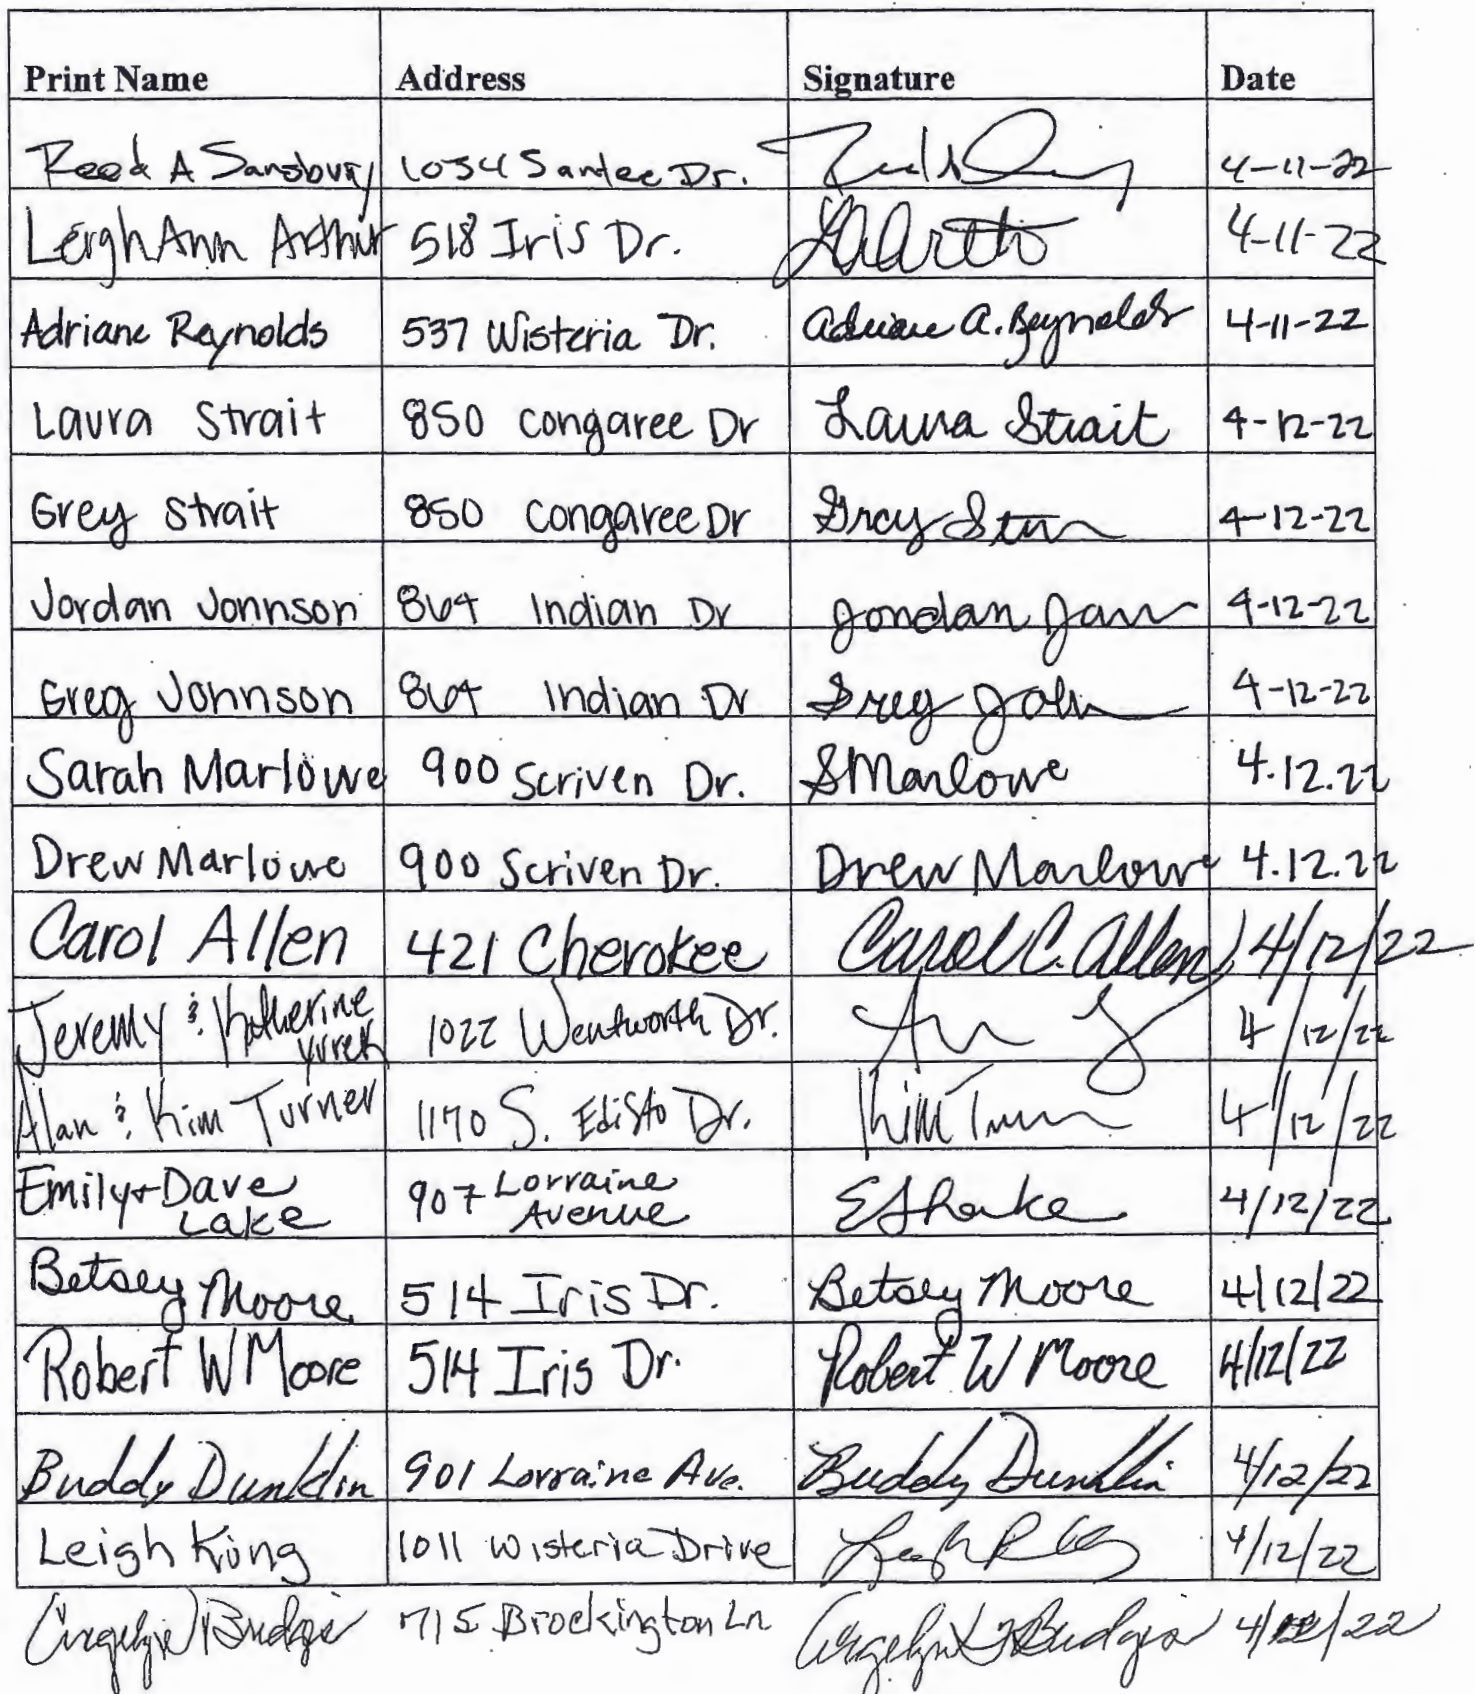 Print Name Address Signature Date
Reed A Sansbury 1034 Santee Dr. 4-11-22
LeighAnn Arthur 518 Iris Dr. LAArthur 4-11-22
Adriane Reynolds 537 Wisteria Dr. Adriane A. Reynolds 4-11-22
Laura Strait 850 Congaree Dr Laura Strait 4-12-22
Grey Strait 850 Congaree Dr Grey 4-12-22
Jordan Johnson 864 Indian Dr Jordan 4-12-22
Greg Johnson 864 Indian Dr Greg 4-12-22
Sarah Marlowe 900 Scriven Dr. SMarlowe 4.12.22
Drew Marlowe 900 Scriven Dr. Drew Marlowe 4.12.22
Carol Allen 421 Cherokee Carol C. Allen 4/12/22
Jeremy & Katherine 1022 Wentworth Dr. 4/12/22
Alan & Kim Turner 1170 S. Edisto Dr. Kim 4/12/22
Emily + Dave Lake 907 Lorraine Avenue 4/12/22
Betsey Moore 514 Iris Dr. Betsey Moore 4/12/22
Robert W Moore 514 Iris Dr. Robert W Moore 4/12/22
Buddy Dunklin 901 Lorraine Ave. Buddy Dunklin 4/12/22
Leigh King 1011 Wisteria Drive 4/12/22
715 Brockington Ln